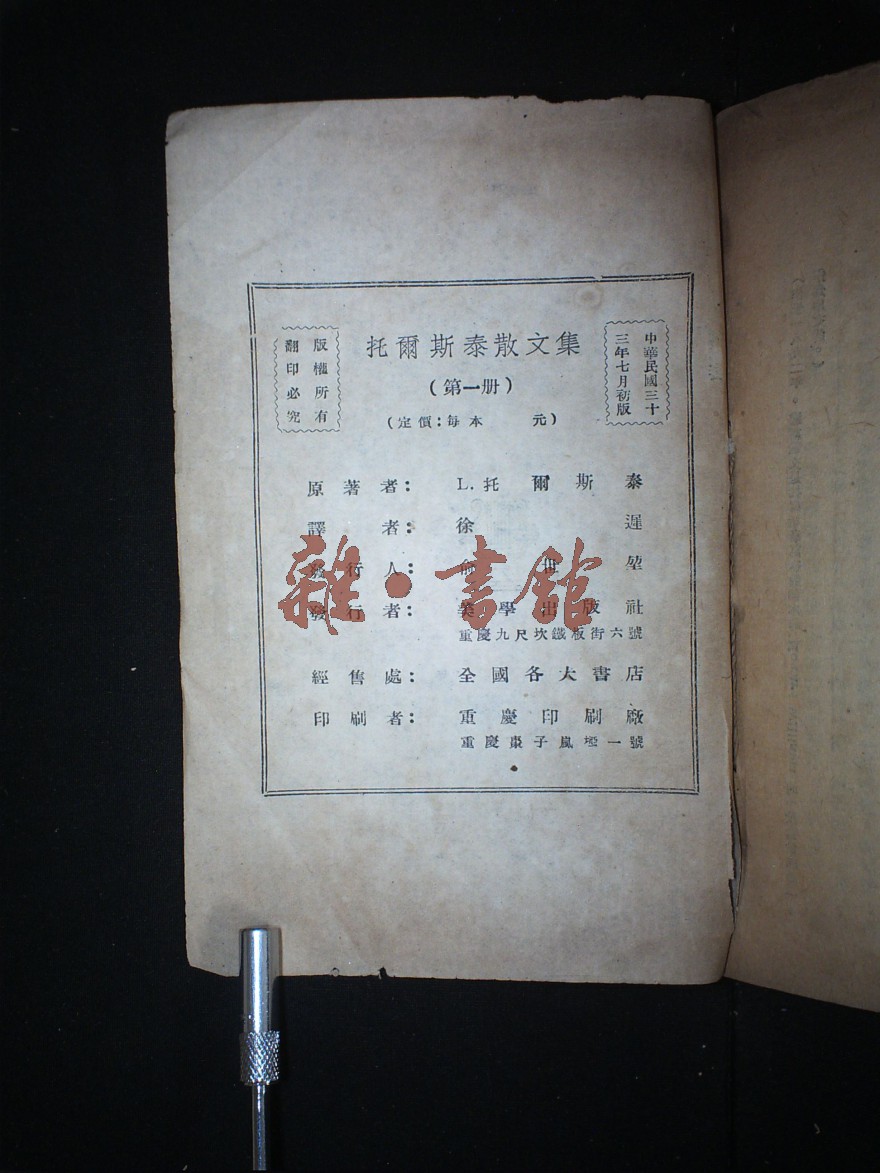 中華民國三十
三年七月初版
托爾斯泰散文集
(第一册)
(定價:每本 元)
版權所有
翻印必究
原著者: L.托爾斯泰
譯者: 徐遲
發行人: 世堃
發行者: 美學出版社
重慶九尺坎鐵板街六號
經售處: 全國各大書店
印刷者: 重慶印刷廠
重慶棗子嵐埡一號
雜·書館